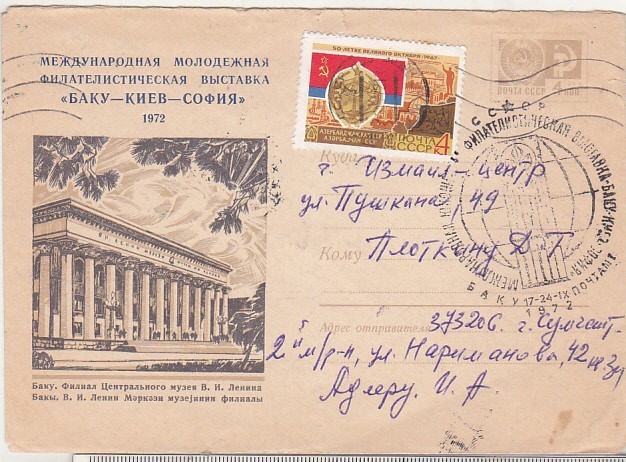 МЕЖДУНАРОДНАЯ МОЛОДЕЖНАЯ
ФИЛАТЕЛИСТИЧЕСКАЯ ВЫСТАВКА
«БАКУ—КИЕВ—СОФИЯ»
1972
50-ЛЕТИЕ ВЕЛИКОГО ОКТЯБРЯ·1967
АЗЕРБАЙДЖАНСКАЯ ССР
АЗƏРБАJҸАН ССР
ПОЧТА
СССР 4
ПОЧТА СССР 4 КОП
СССР
МЕЖДУНАРОДНАЯ МОЛОДЕЖНАЯ ФИЛАТЕЛИСТИЧЕСКАЯ ВЫСТАВКА-БАКУ-КИЕВ-СОФИЯ
БАКУ 17-24-IX ПОЧТАМТ
1972
Куда
г. Измаил-центр
ул. Пушкина, 49
Кому
Плоткину Д. Г.
Адрес отправителя
373206. г. Сумгаит-
2й м/р-н, ул. Нариманова, 42
Адлеру. И. А.
Баку. Филиал Центрального музея В. И. Ленина
Бакы. В. И. Ленин Мəркəзи музеjинин филиалы